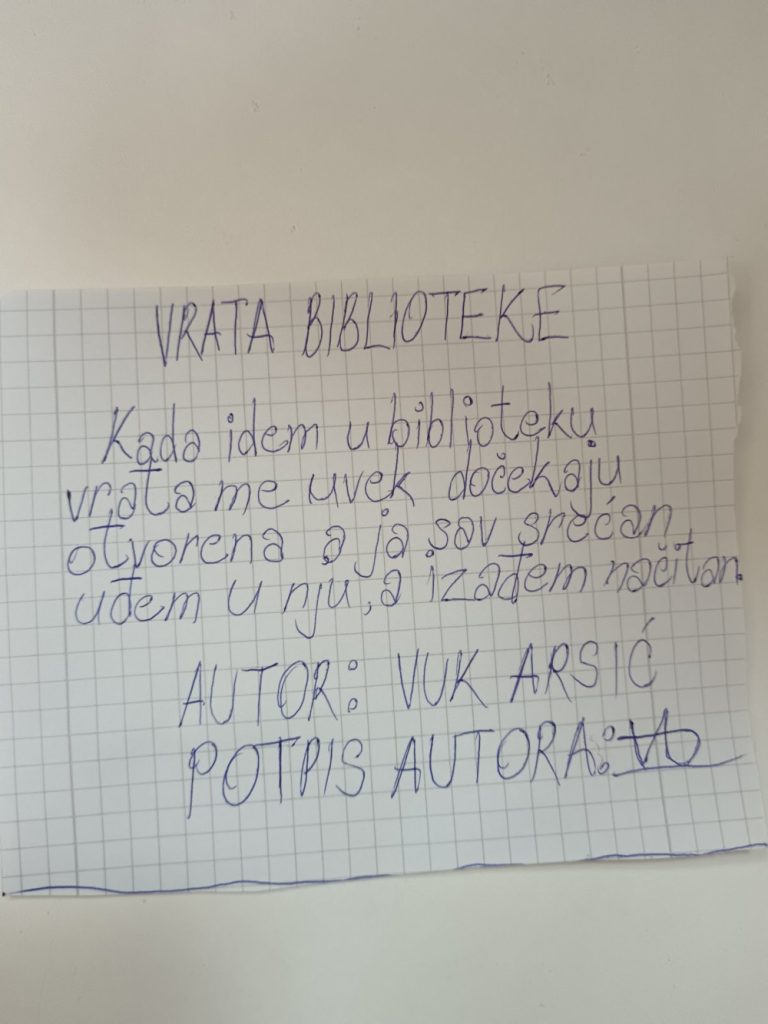 VRATA BIBLIOTEKE
Kada idem u biblioteku
vrata me uvek dočekaju
otvorena a ja sav srećan
uđem u nju, a izađem načitan.
AUTOR: VUK ARSIĆ
POTPIS AUTORA: